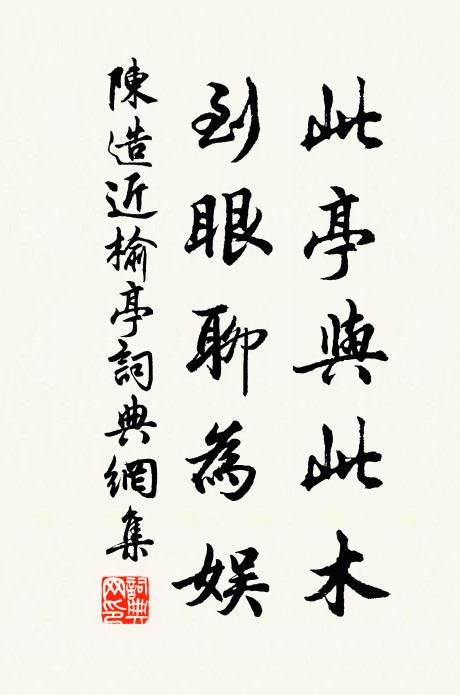 此亭與此木
到眼聊為娱
陳造近榆亭詞典網集
詞典網印